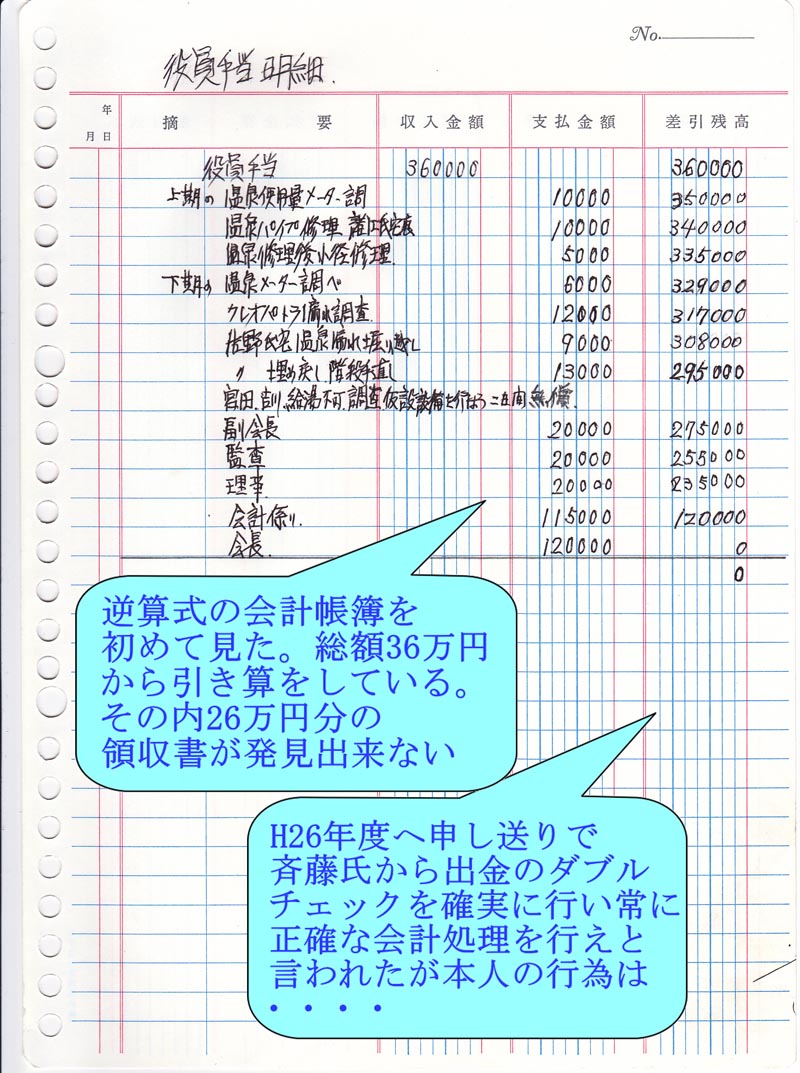 No.
役員手当明細.
年
月 日
摘 要 収入金額 支払金額 差引残高
役員手当 360000 360000
上期の 温泉使用量メーター調 10000 350000
温泉パイプ修理 諸江氏宅裏 10000 340000
温泉修理後小径修理. 5000 335000
下期の 温泉メーター調べ 6000 329000
クレオパトラ1漏水調査. 12000 317000
佐野氏宅温泉漏れ堀り越し 9000 308000
〃 埋め戻し、階段手直し 13000 295000
宮田. 給湯不可.調査.仮設設備を行なう
副会長 20000 275000
監査 20000 255000
理事 20000 235000
会計係り. 115000 120000
会長. 120000 0
0
逆算式の会計帳簿を
初めて見た。総額36万円
から引き算をしている。
その内26万円分の
領収書が発見出来ない
H26年度へ申し送りで
斉藤氏から出金のダブル
チェックを確実に行い常に
正確な会計処理を行えと
言われたが本人の行為は
・・・・